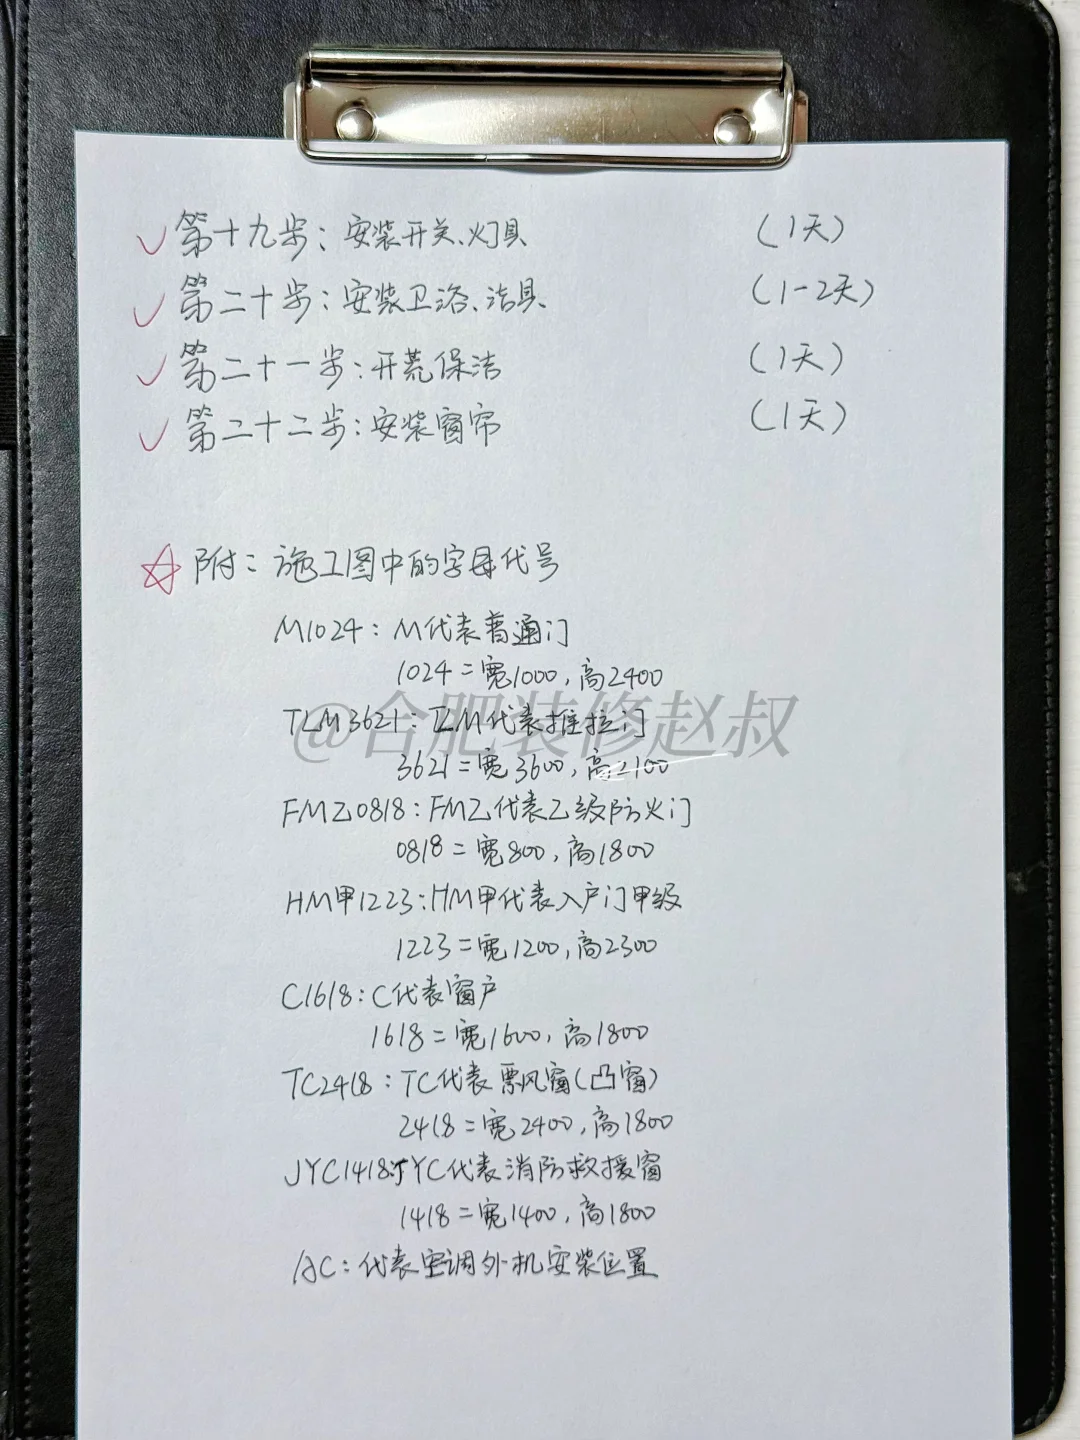 第十九步：安装开关、灯具 （1天）
第二十步：安装卫浴、洁具 （1-2天）
第二十一步：开荒保洁 （1天）
第二十二步：安装窗帘 （1天）
附：施工图中的字母代号
M1024：M代表普通门
1024=宽1000，高2400
TLM3621：TLM代表推拉门
@合肥装修赵叔
3621=宽3600，高2100
FM乙0818：FM乙代表乙级防火门
0818=宽800，高1800
HM甲1223：HM甲代表入户门甲级
1223=宽1200，高2300
C1618：C代表窗户
1618=宽1600，高1800
TC2418：TC代表飘风窗（凸窗）
2418=宽2400，高1800
JYC1418：JYC代表消防救援窗
1418=宽1400，高1800
AC：代表空调外机安装位置